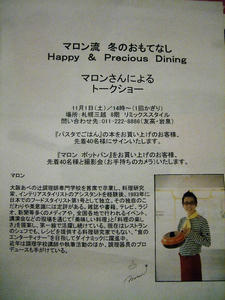 マロン流 冬のおもてなし
Happy & Precious Dining
マロンさんによる
トークショー
11月1日(土)/14時~(1回かぎり)
場所:札幌三越 8階 リミックススタイル
問い合わせ先:011-222-8886(友茶・岩泉)
『パスタでごはん』の本をお買い上げのお客様、
先着40名様にサインいたします。
『マロン ポットパン』をお買い上げのお客様、
先着40名様と撮影会(お手持ちのカメラ)いたします。
マロン
大阪あべの辻調理師専門学校を首席で卒業し、料理研究
家、インテリアスタイリストのアシスタントを経験後、1983年に
日本でのフードスタイリスト第1号として独立。その独自のこ
だわりや美意識には定評がある。雑誌や書籍、テレビ、ラジ
オ、新聞等多くのメディアや、全国各地で行われるイベント、
講演会などの現場を通じて「美味しい料理と「料理の楽し
さ」を提案し、第一線で活躍し続けている。現在はレストラン
のシェフでも、レシピを提供する料理研究家でもない、"食の
エンターティナー"を目指してダイナミックに躍進中。
近年は調理学校講師や執筆活動のほか、調理器具のプロ
デュースも手がけている。